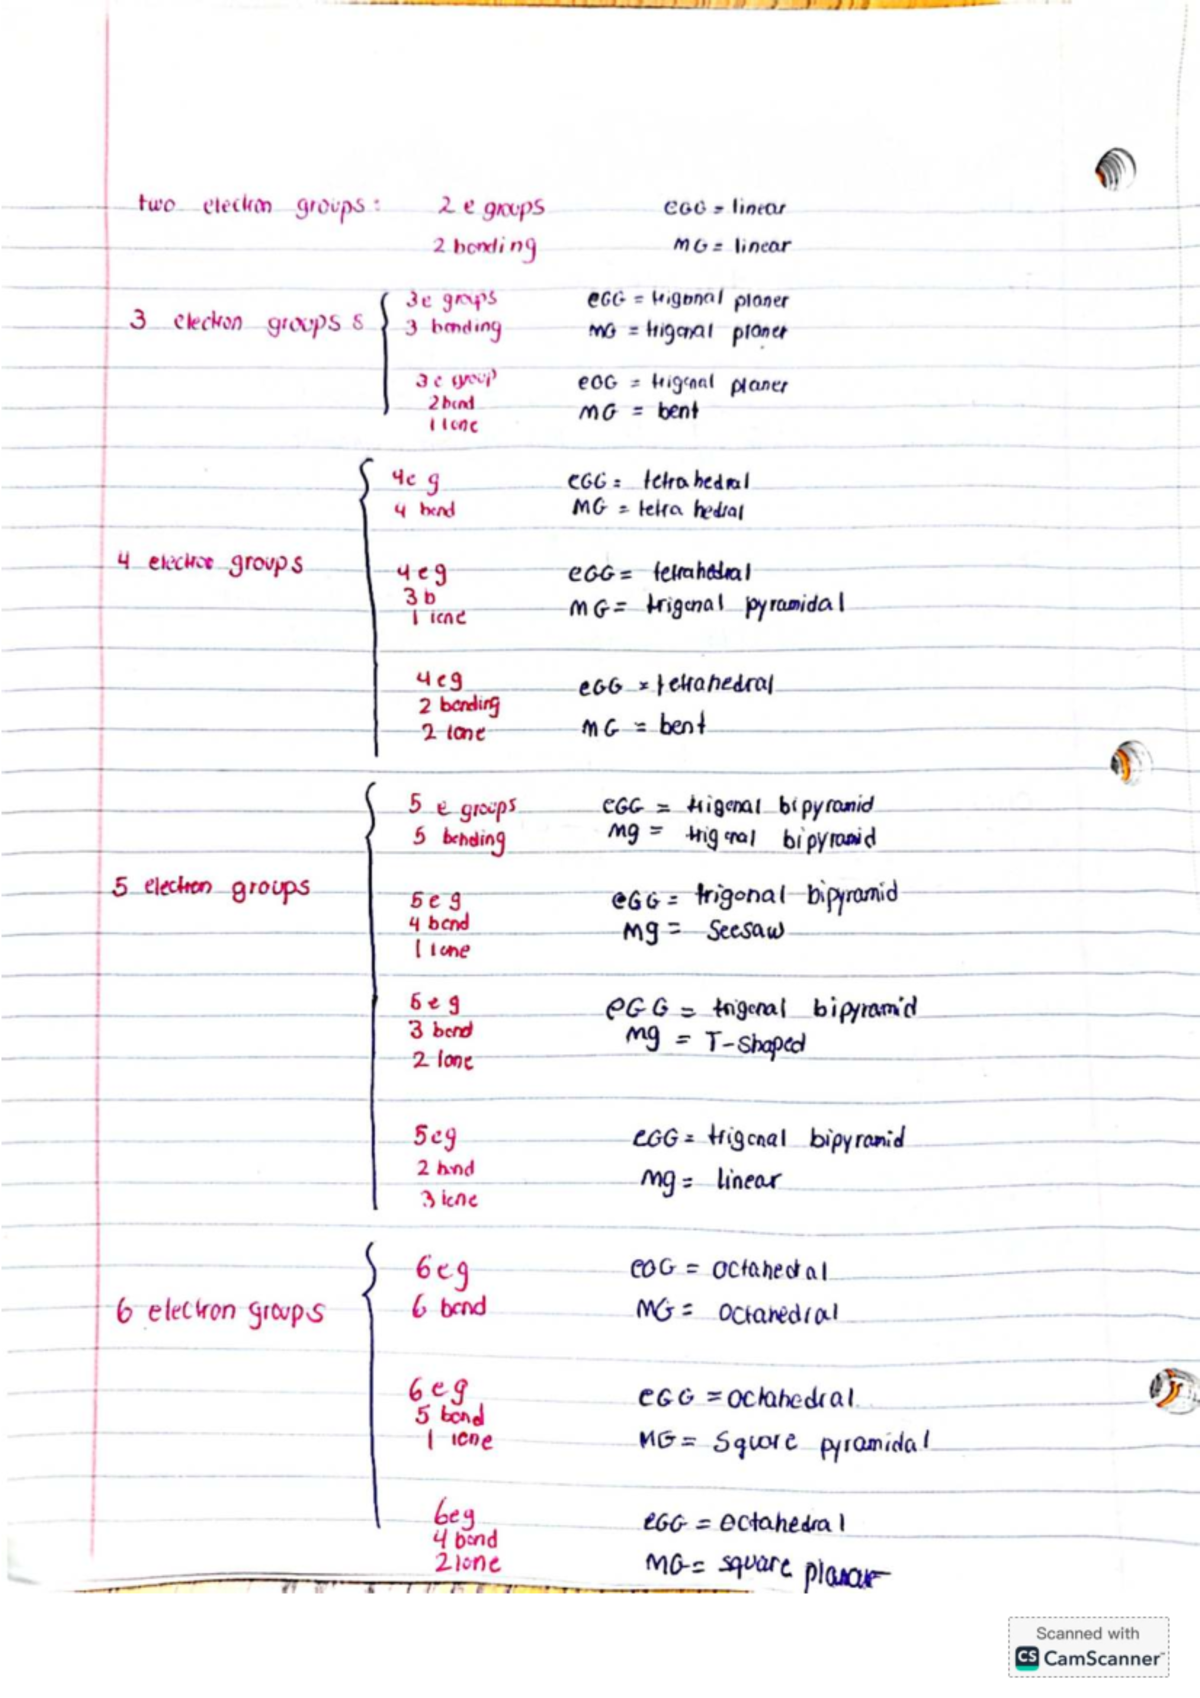 two electron groups: 2 e groups EGG = linear
2 bonding MG = linear
3 electron groups 3e groups eGG = trigonal planer
3 bonding MG = trigonal planer
3e group eGG = trigonal planer
2 bond MG = bent
1 lone
4e g eGG = tetrahedral
4 bond MG = tetra hedral
4 electron groups 4eg eGG = tetrahedral
3b MG = trigonal pyramidal
1 lone
4eg eGG = tetrahedral
2 bonding MG = bent
2 lone
5 e groups eGG = trigonal bipyramid
5 bonding mg = trigonal bipyramid
5 electron groups 5eg eGG = trigonal bipyramid
4 bond mg = Seesaw
1 lone
5eg eGG = trigonal bipyramid
3 bond mg = T-shaped
2 lone
5eg eGG = trigonal bipyramid
2 bond mg = linear
3 lone
6eg eGG = octahedral
6 electron groups 6 bond MG = octahedral
6eg eGG = octahedral
5 bond MG = Square pyramidal
1 lone
6eg eGG = octahedral
4 bond MG = square planar
2 lone
Scanned with
CS CamScanner